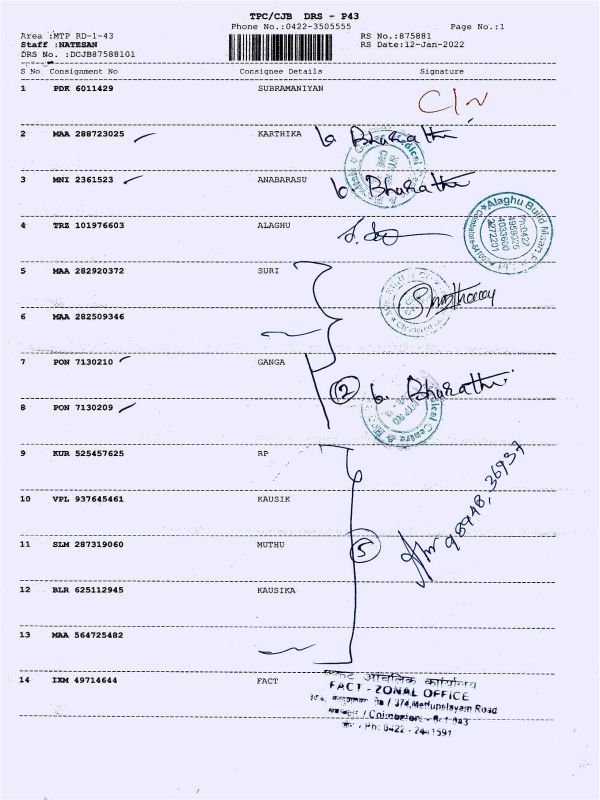 TPC/CJB DRS - P43
Phone No.:0422-3505555 Page No.:1
Area :MTP RD-1-43 RS No.:875881
Staff :NATESAN RS Date:12-Jan-2022
DRS No. :DCJB87588101
S No Consignment No Consignee Details Signature
1 PDK 6011429 SUBRAMANIYAN
2 MAA 288723025 KARTHIKA b. Bharathi
3 MNI 2361523 ANABARASU b. Bharathi
4 TRZ 101976603 ALAGHU
Alaghu Build
Ph:0422
4959025
4033600
5 MAA 282920372 SURI
6 MAA 282509346
7 PON 7130210 GANGA
2 b. Bharathi
8 PON 7130209
9 KUR 525457625 RP
98948, 36937
10 VPL 937645461 KAUSIK
11 SLM 287319060 MUTHU 5
12 BLR 625112945 KAUSIKA
13 MAA 564725482
14 IXM 49714644 FACT
आंचलिक कार्यालय
FACT - ZONAL OFFICE
/ 374, Mettupalayam Road
/ Coimbatore -
/ Ph: 0422 -